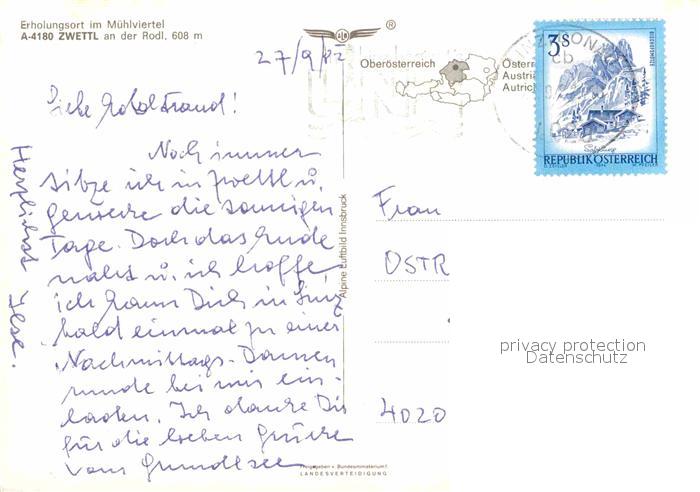 Erholungsort im Mühlviertel
A-4180 ZWETTL an der Rodl. 608 m
®
27/9/82
Oberösterreich
Österr
Austria
Autric
3S
Salzburg
REPUBLIK ÖSTERREICH
Liebe
Noch immer
sitze ich in Zwettl u.
geniesse die sonnigen
Tage. Doch das Ende
naht u. ich hoffe,
ich kann Dich in Linz
bald einmal zu einer
Nachmittags-Damen
runde bei mir ein-
laden. Ich danke Dir
für die lieben Grüsse
vom Grundlsee
Herzlichst Ilse.
Alpine Luftbild Innsbruck
Frau
OSTR
4020
privacy protection
Datenschutz
Freigegeben v. Bundesministerium f.
LANDESVERTEIDIGUNG